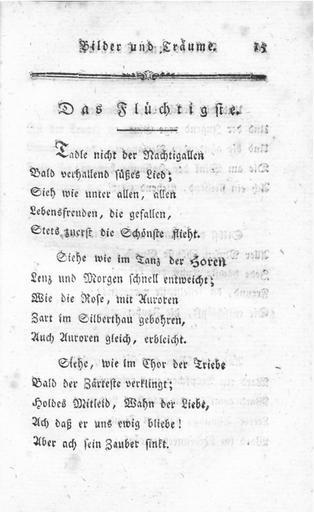 Bilder und Träume. 15
Das Flüchtigste.
Tadle nicht der Nachtigallen
Bald verhallend süßes Lied;
Sieh wie unter allen, allen
Lebensfreuden, die gefallen,
Stets zuerst die Schönste flieht.
Siehe wie im Tanz der Horen
Lenz und Morgen schnell entweicht;
Wie die Rose, mit Auroren
Zart im Silberthau gebohren,
Auch Auroren gleich, erbleicht.
Siehe, wie im Chor der Triebe
Bald der Zärteste verklingt;
Holdes Mitleid, Wahn der Liebe,
Ach daß er uns ewig bliebe!
Aber ach sein Zauber sinkt.